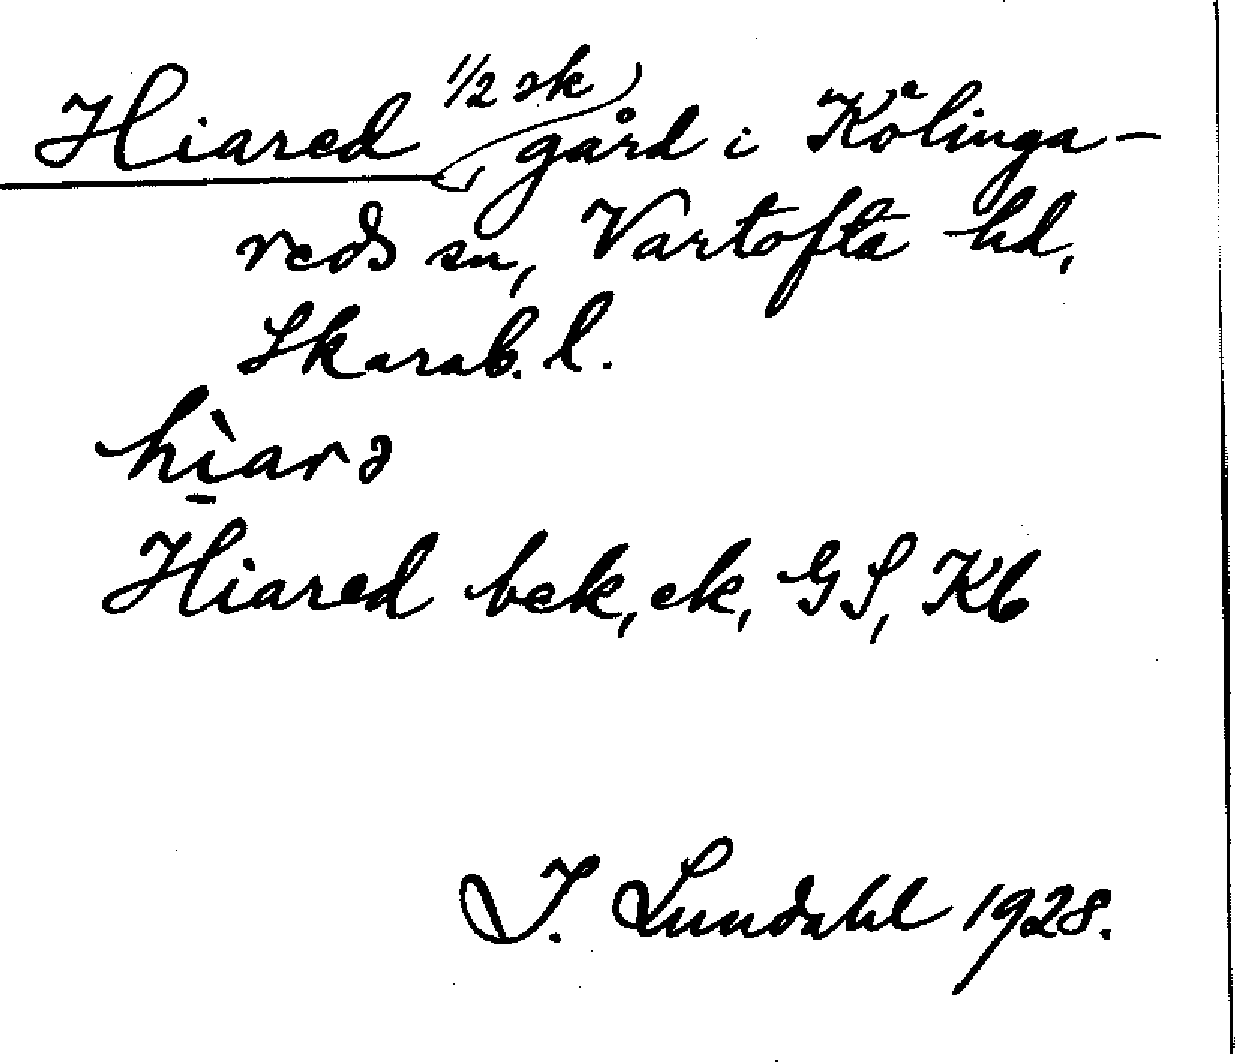 Hiared, 1/2 sk gård i Kölinga-
reds sn, Vartofta hd,
Skarab. l.
hì̱arə
Hiared bek, ek, GS, Kb
I. Lundahl 1928.